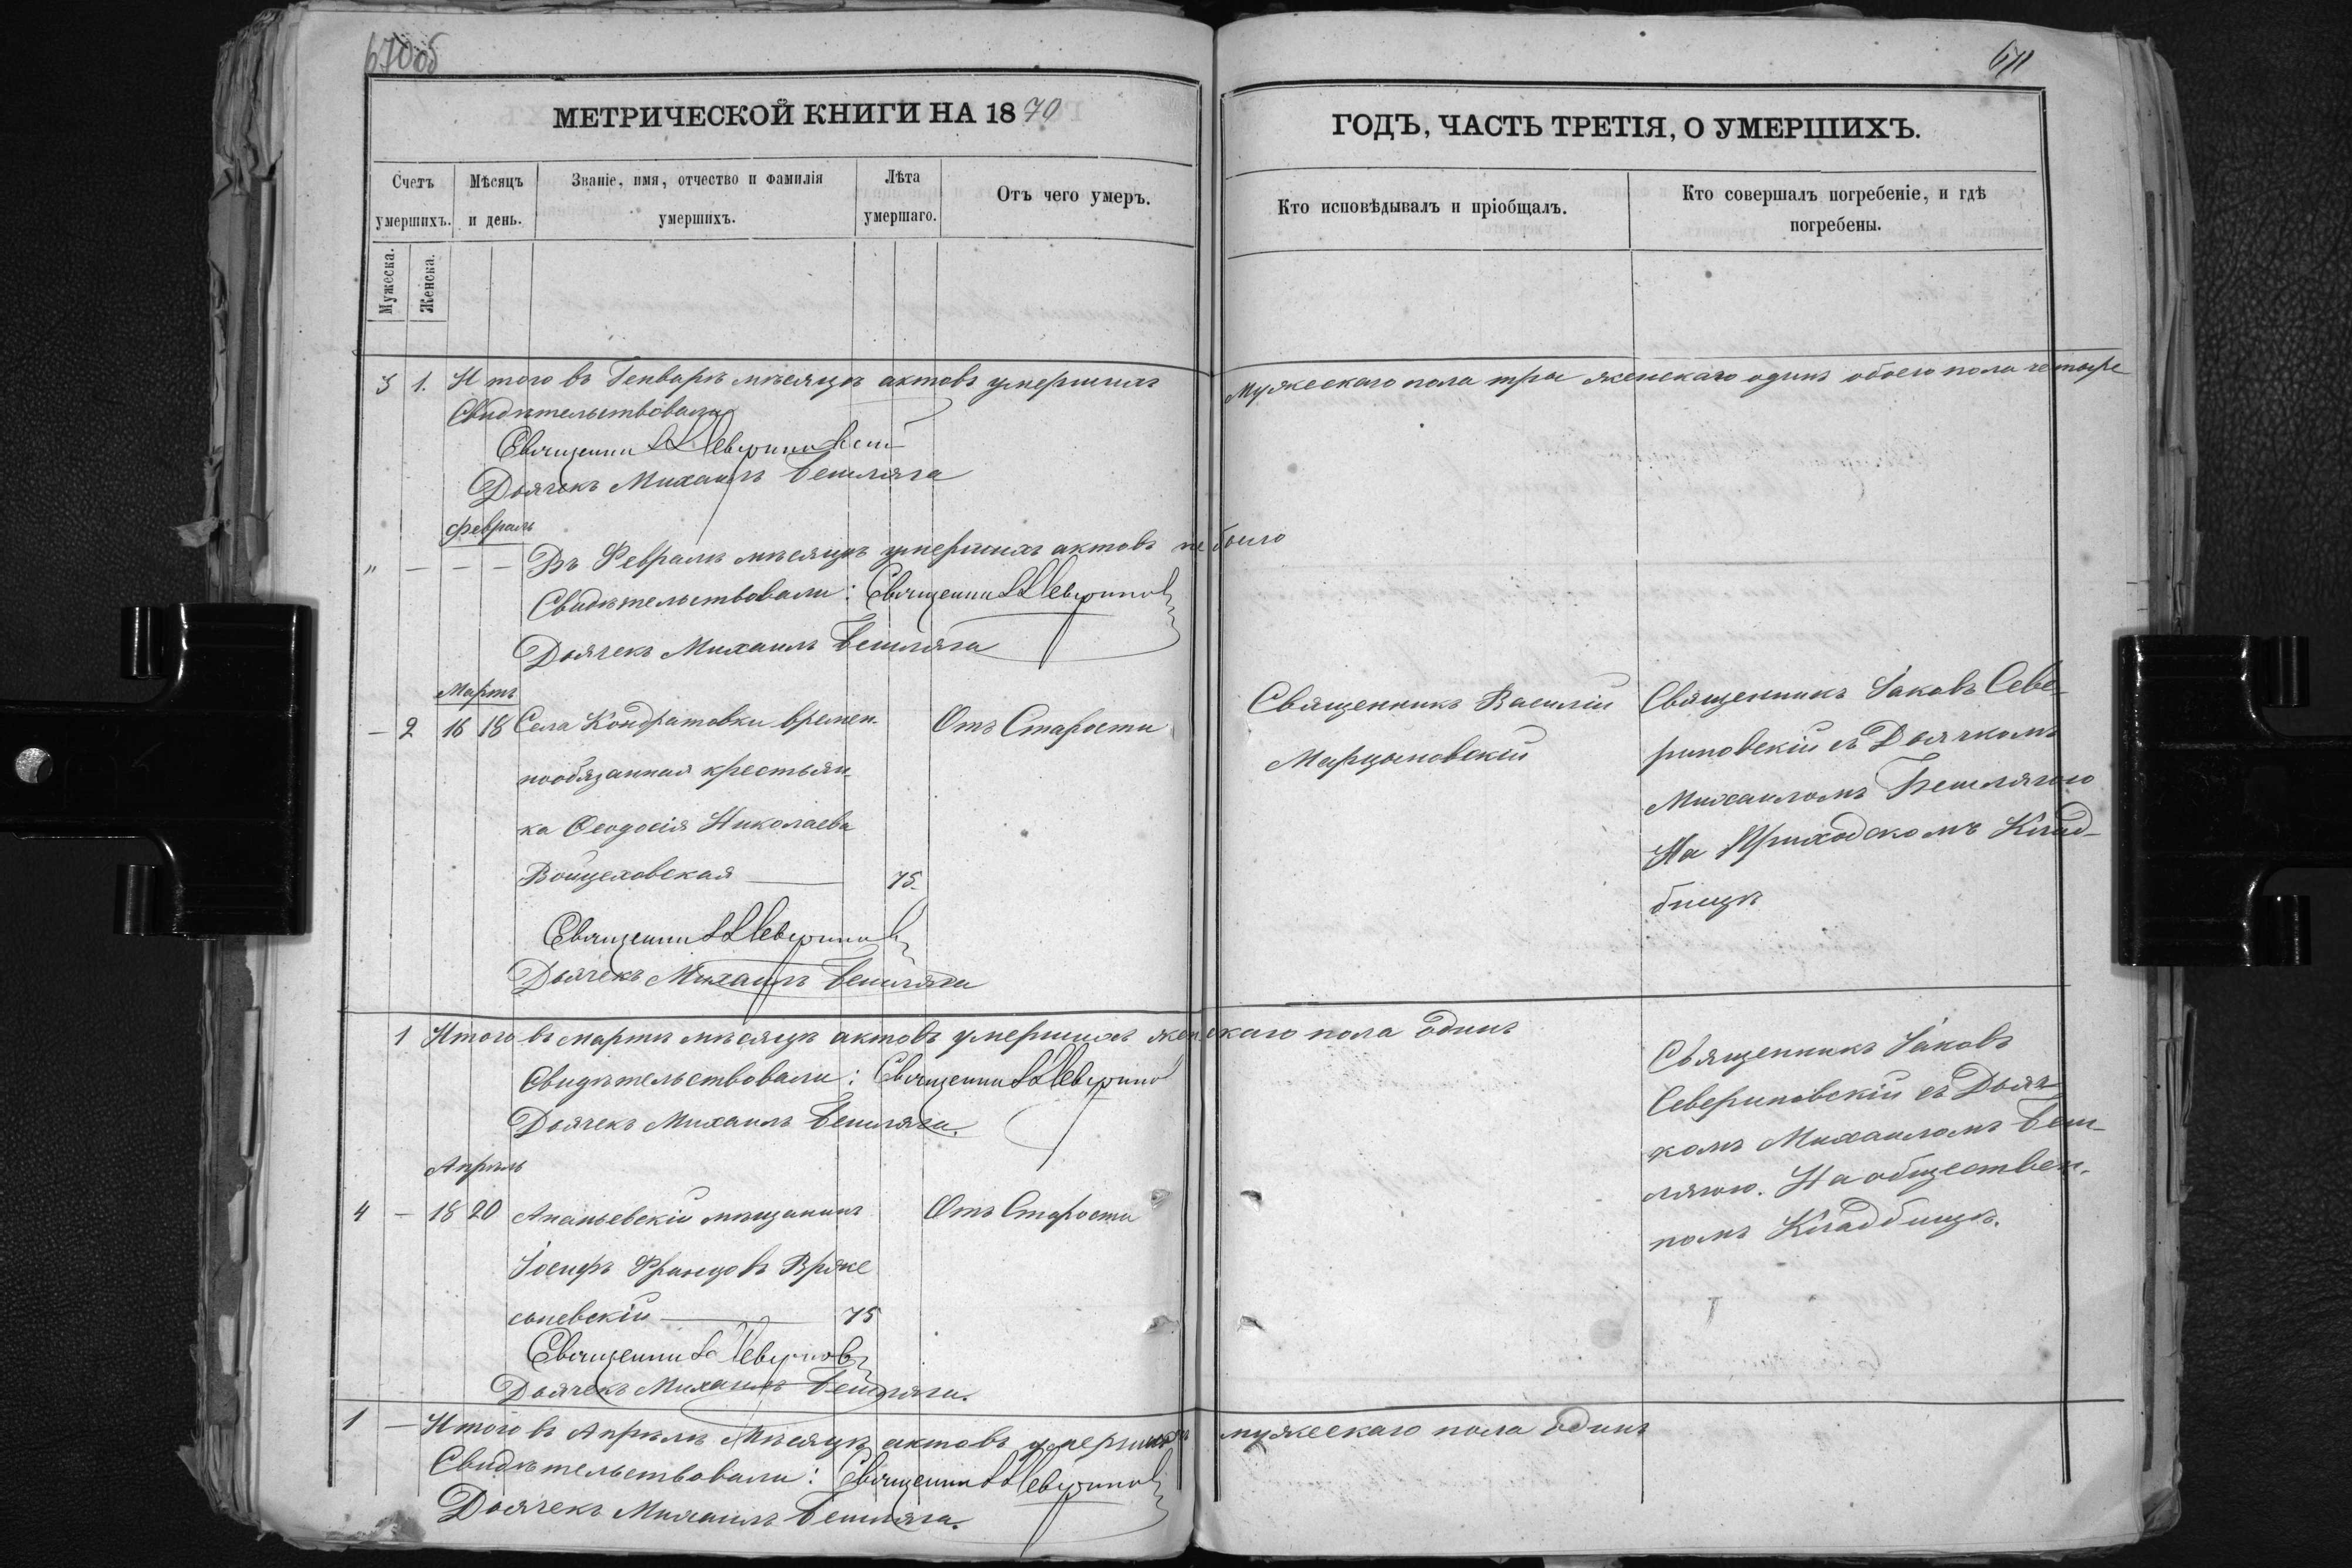 670об
МЕТРИЧЕСКОЙ КНИГИ НА 1870
Счетъ умершихъ.
Мужеска.
Женска.
Мѣсяцъ и день.
Званіе, имя, отчество и фамилія умершихъ.
Лѣта умершаго.
Отъ чего умеръ.
3 1. Итого въ Генварѣ мѣсяцѣ актовъ умершихъ
Свидѣтельствовали
Священник Севериновский
Дьячекъ Михаилъ Бешляга
Февраль
" — — — Въ Февралѣ мѣсяцѣ умершихъ актовъ не было
Свидѣтельствовали: Священник Северинов
Дьячекъ Михаилъ Бешляга
Мартъ
— 2 16 18 Села Кондратовки времен-
Отъ Старости
нообязанная крестьян-
ка Ѳеодосія Николаева
Войцеховская — 75.
Священник Северинов
Дьячекъ Михаилъ Бешляга
1 Итого въ мартѣ мѣсяцѣ актовъ умершихъ женскаго пола одинъ
Свидѣтельствовали: Священник Северинов
Дьячекъ Михаилъ Бешляга.
Апрѣль
4 — 18 20 Ананьевскій мѣщанинъ
Отъ Старости
Іосифъ Францовъ Врже
соневскій — 75
Священник Северинов
Дьячекъ Михаилъ Бешляга.
1 — Итого въ Апрѣлѣ Мѣсяцѣ актовъ умершихъ
Свидѣтельствовали: Священник Северинов
Дьячекъ Михаилъ Бешляга.
671
ГОДЪ, ЧАСТЬ ТРЕТІЯ, О УМЕРШИХЪ.
Кто исповѣдывалъ и пріобщалъ.
Кто совершалъ погребеніе, и гдѣ
погребены.
Мужескаго пола три женскаго одинъ обоего пола четыре
Священникъ Василій
Марцыновскій
Священникъ Іаковъ Севе-
риновскій съ Дьячкомъ
Михаиломъ Бешлягою
На Приходскомъ Клад-
бищѣ
Священникъ Іаковъ
Севериновскій съ Дьяч-
комъ Михаиломъ Беш-
лягою. На обществен-
номъ Кладбищѣ.
мужескаго пола одинъ